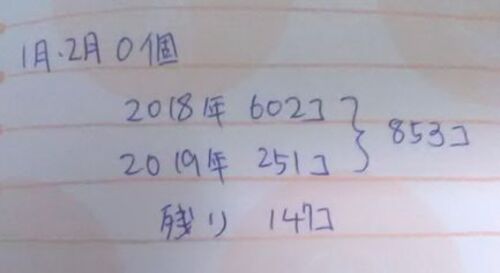 1月・2月 0個
2018年 602コ
2019年 251コ } 853コ
残り 147コ